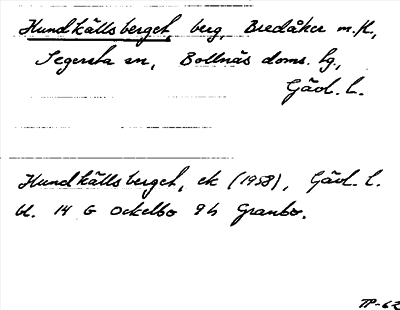 Hundkällsberget, berg, Bredåker m.fl.,
Segersta sn, Bollnäs doms. hg.,
Gävl. l.
Hundkällsberget, ek (1958), Gävl. l.
bl. 14 G Ockelbo 9h Granbo.
TP-62